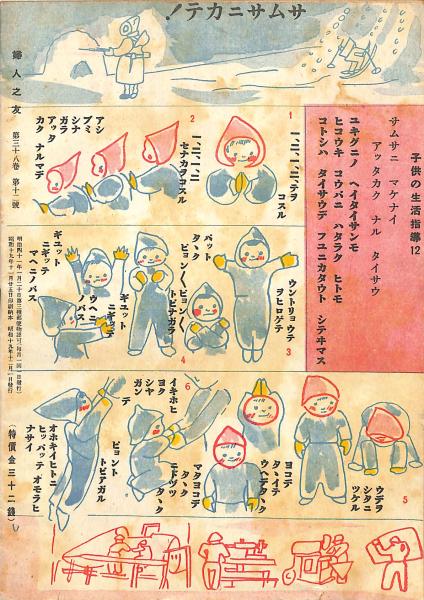 サムサニカテ!
子供の生活指導12
サムサニ マケナイ
アッタカク ナル タイサウ
ユキグニノ ヘイタイサンモ
ヒコウキ コウバニ ハタラク ヒトモ
コトシハ タイサウデ フユニカタウト シテヰマス
1
一、二、三、テヲ
コスル
2
一、二、三、
セナカヲコスル
アシ
ブミ
シナ
ガラ
アッタ
カク ナルマデ
3
ウントリョウテ
ヲヒロゲテ
4
パット
タヽク
ピョン〱ピョン〱
トビナガラ
ギュット
ニギッテ
ウヘニ
ノバス
ギュット
ニギッテ
マヘニノバス
5
ウデヲ
シタニ
ツケル
ヨコデ
タヽイテ
ウヘデタヽク
マタヨコデ
タヽク
ニドヅツ
タヽク
6
イキホヒ
ヨク
シヤ
ガン
デ
ピョント
トビアガル
オホキイヒトニ
ヒッパッテ オモラヒ
ナサイ
婦人之友 第三十八卷 第十二號
昭和十九年十一月廿五日印刷納本 昭和十九年十二月一日發行
(特價金三十二錢)